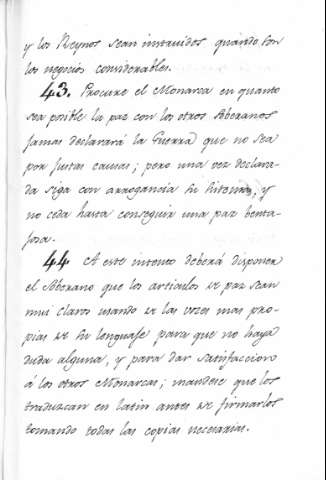 y los Reynos sean intruidos quando son
los negocios considerables.
43. Procure el Monarca en quanto
sea posible la paz con los otros Soberanos
jamas declarará la Guerra que no sea
por justas causas; pero una vez declara-
da siga con arrogancia su sistema, y
no ceda hasta conseguir una paz benta-
josa.
44 A este intento deberá disponer
el Soberano que los articulos de paz sean
mui claros usando de las vozes mas pro-
pias de su lenguaje para que no haya
duda alguna, y para dar satisfaccion
á los otros Monarcas; mandese que los
traduzcan en latin antes de firmarlos
tomando todas las copias necesarias.